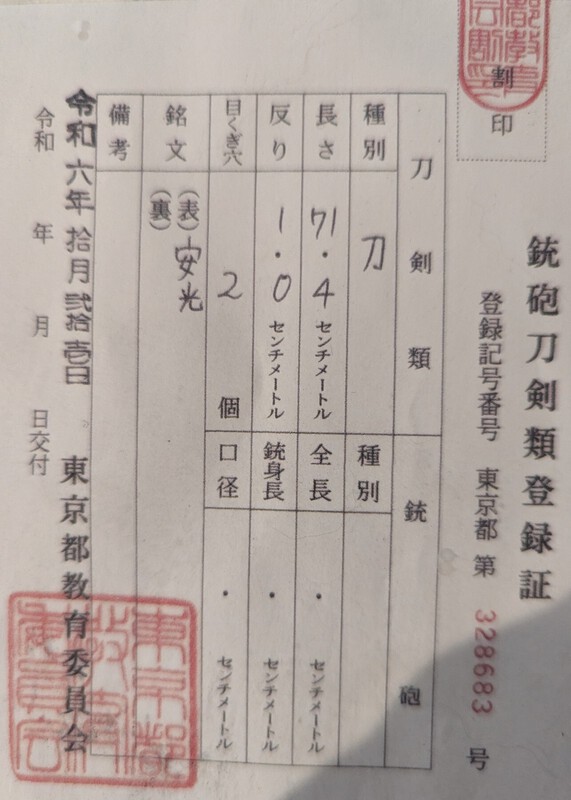 割印
銃砲刀剣類登録証
登録記号番号 東京都 第 328683 号
刀剣類
銃砲
種別 刀
種別
長さ 71.4 センチメートル
全長 ・ センチメートル
反り 1.0 センチメートル
銃身長 ・ センチメートル
目くぎ穴 2 個
口径 ・ センチメートル
銘文 (表) 安光
(裏)
備考
令和六年拾月弐拾壱日
東京都教育委員会
令和 年 月 日交付
東京都
教育
委員会